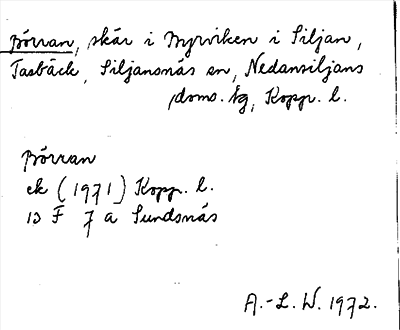 Börran, skär i Byrviken i Siljan,
Tasbäck, Siljansnäs sn, Nedansiljans
doms. tg, Kopp. l.
Börran
ek (1971) Kopp. l.
13 F 7 a Sundsnäs
A.-L. W. 1972.